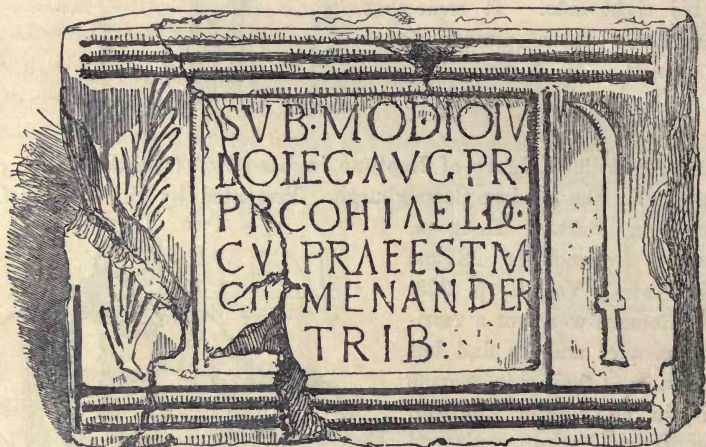 SVB·MODIOIV
LIOLEGAVGPR·
PRCOHIAELDC
CVI PRAEESTM
CL· MENANDER
TRIB: